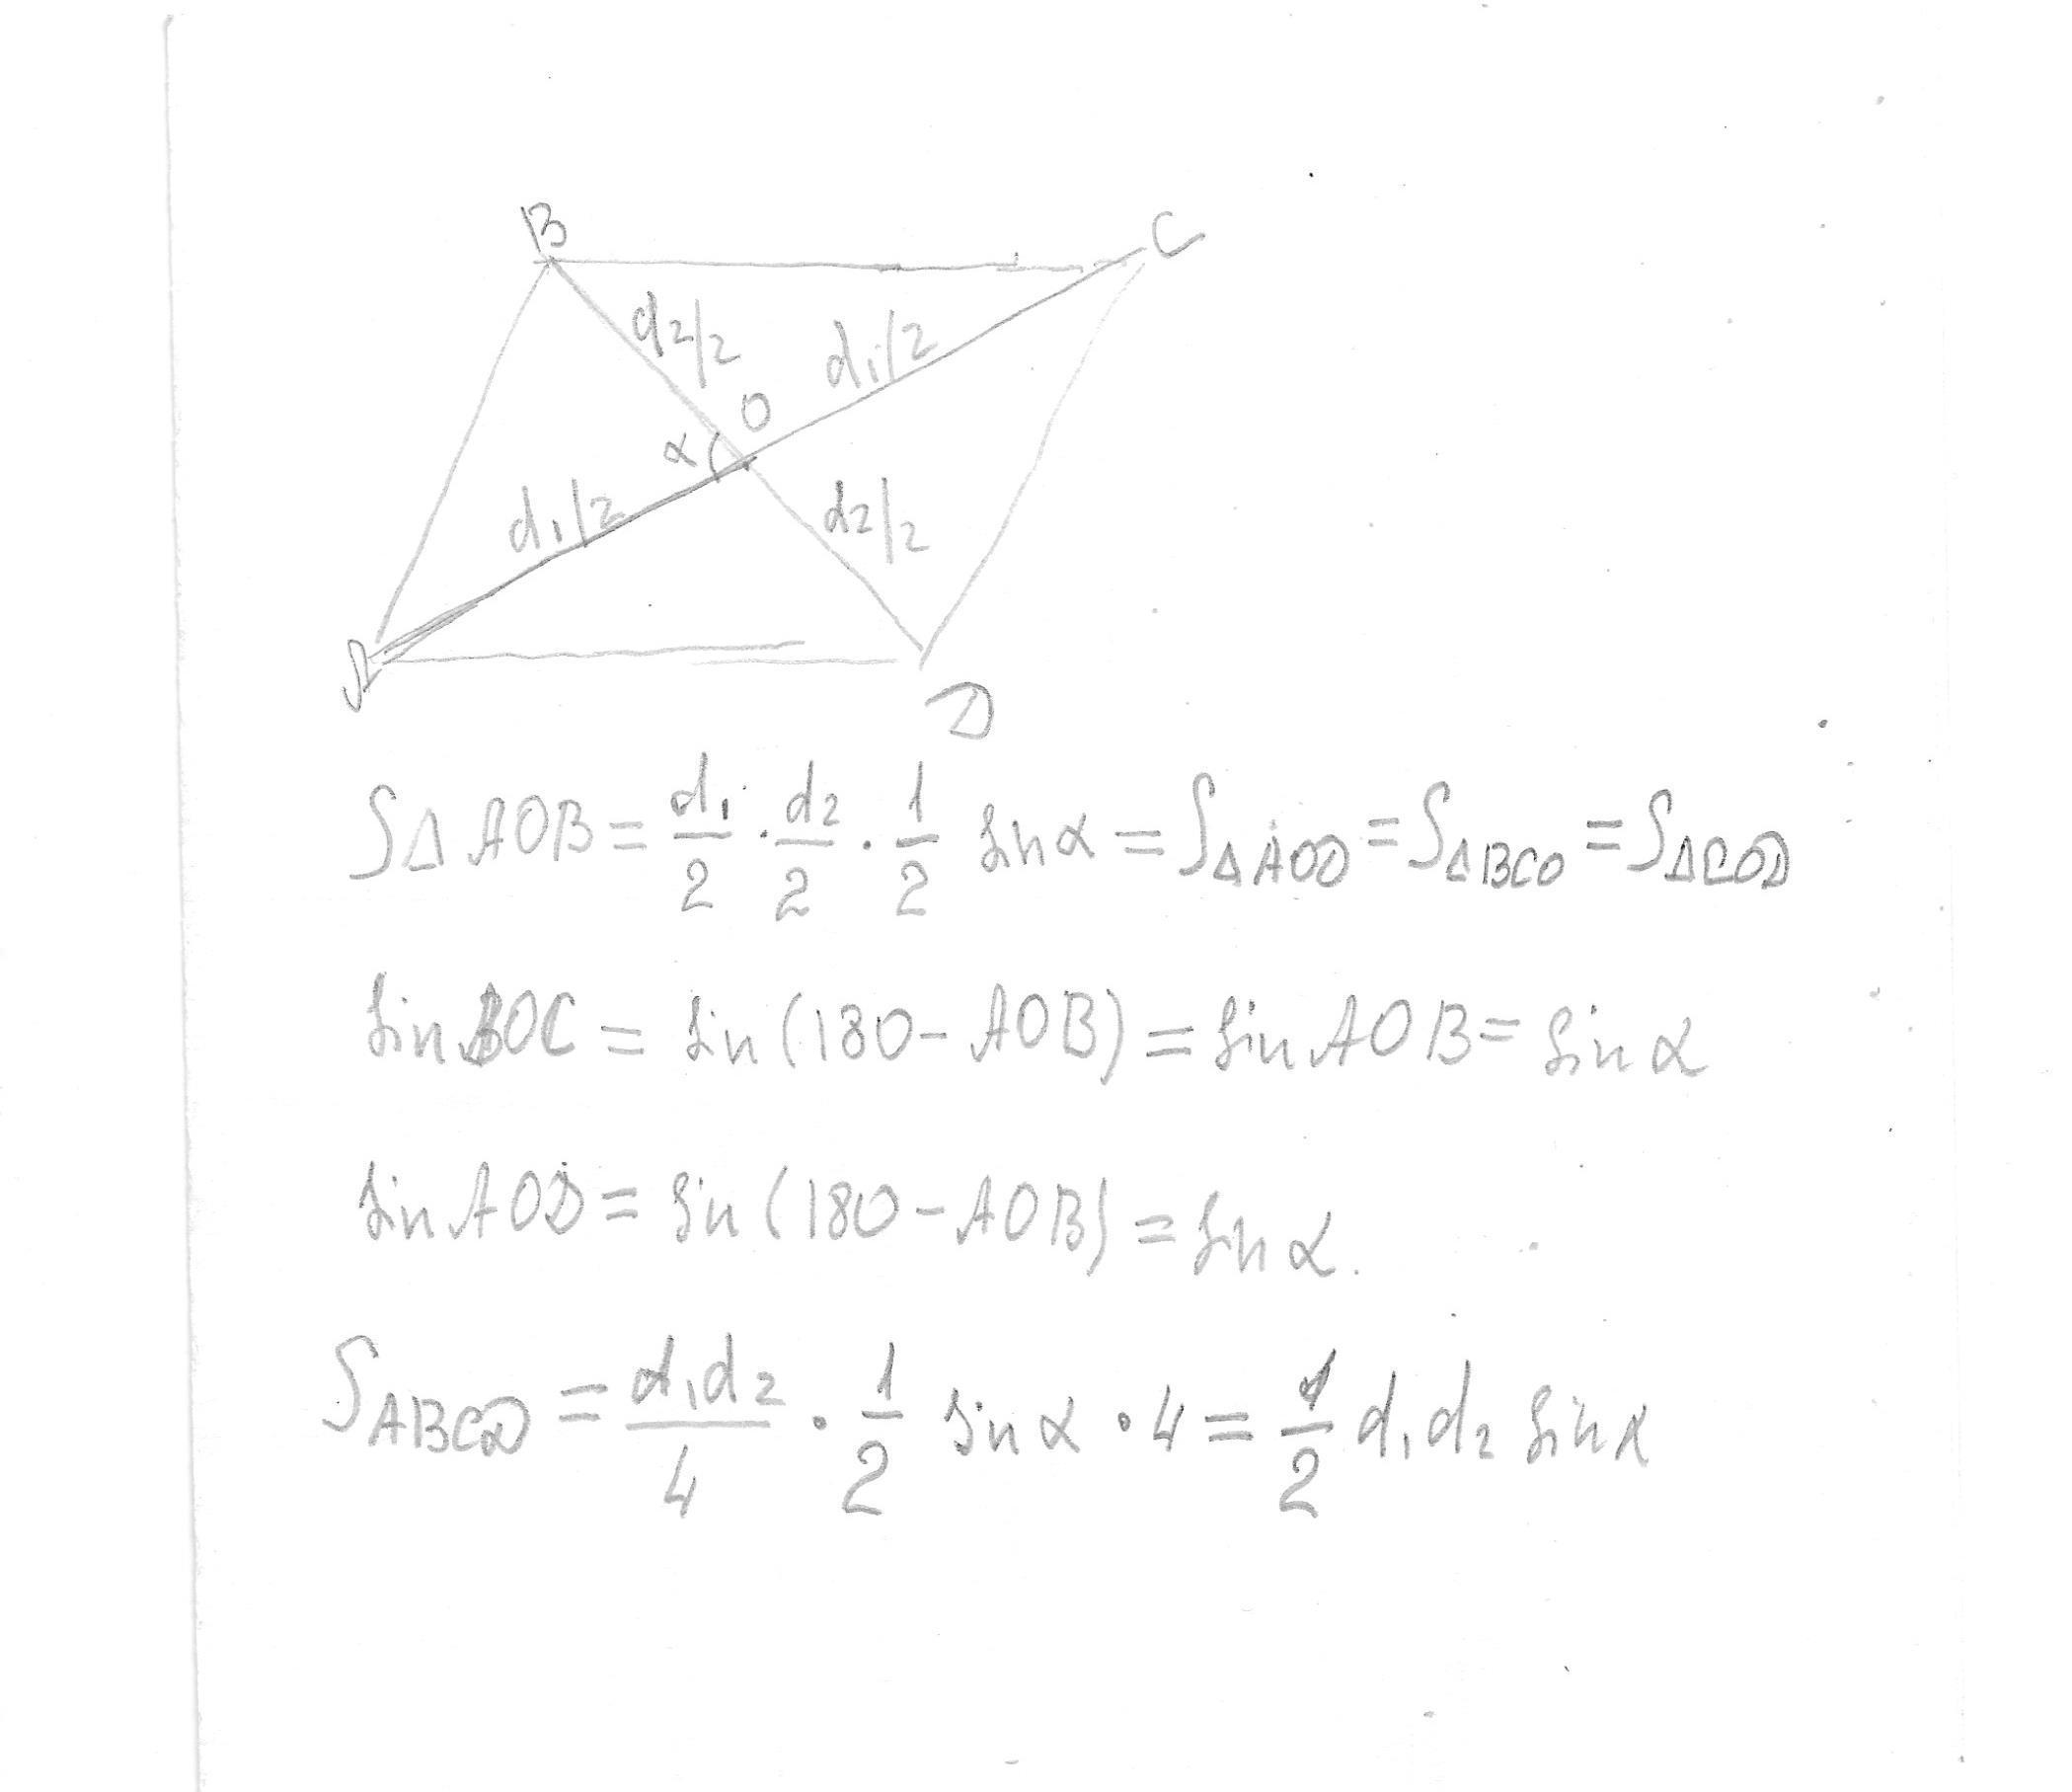 B
C
d2/2
d1/2
O
α
d1/2
d2/2
A
D
SΔAOB = d1/2 · d2/2 · 1/2 sinα = SΔAOD = SΔBCO = SΔCOD
sin BOC = sin(180 - AOB) = sin AOB = sin α
sin AOD = sin(180 - AOB) = sin α.
SABCD = d1d2/4 · 1/2 sin α · 4 = 1/2 d1d2 sin α